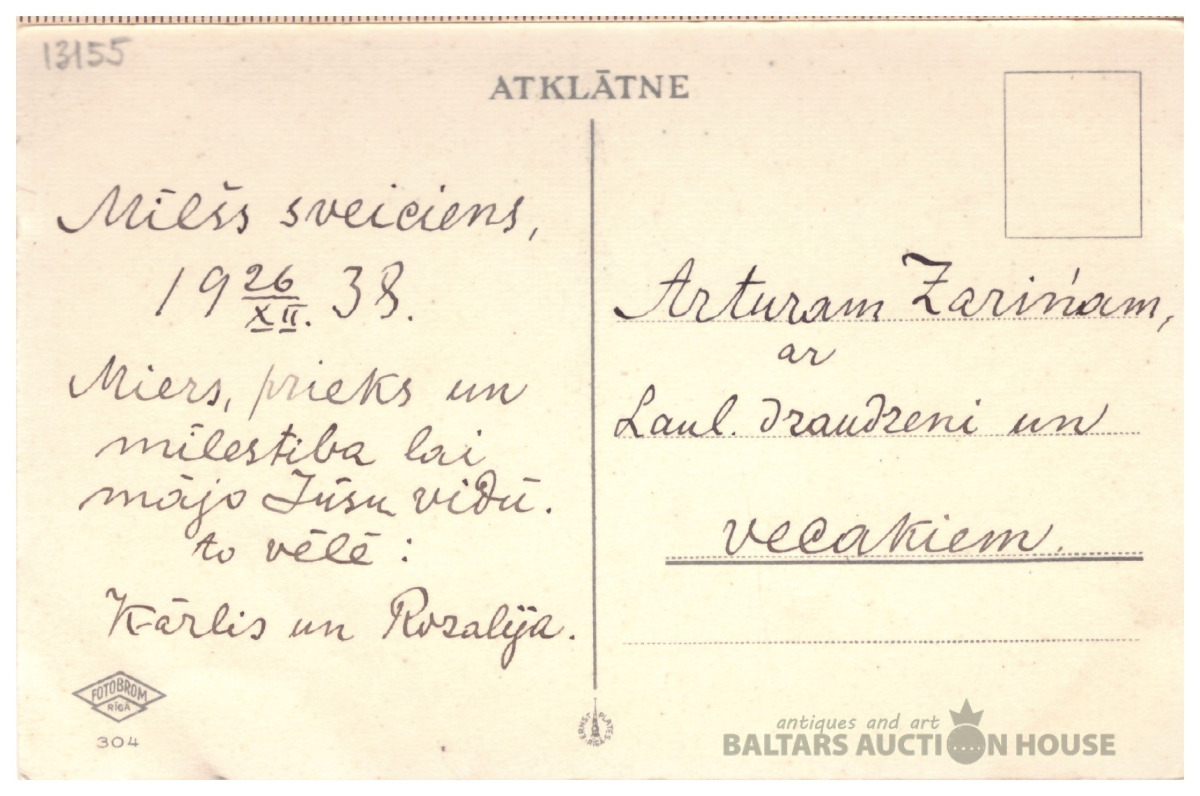 13155
ATKLĀTNE
Mīlšs sveiciens,
19 26/XII. 38.
Miers, prieks un
mīlestiba lai
mājo Jūsu vidū.
to vēlē:
Kārlis un Rozalija.
FOTOBROM
RĪGĀ
304
ERNST PLATES RĪGĀ
Arturam Zariņam,
ar
Laul. draudzeni un
vecakiem.
antiques and art
BALTARS AUCTION HOUSE